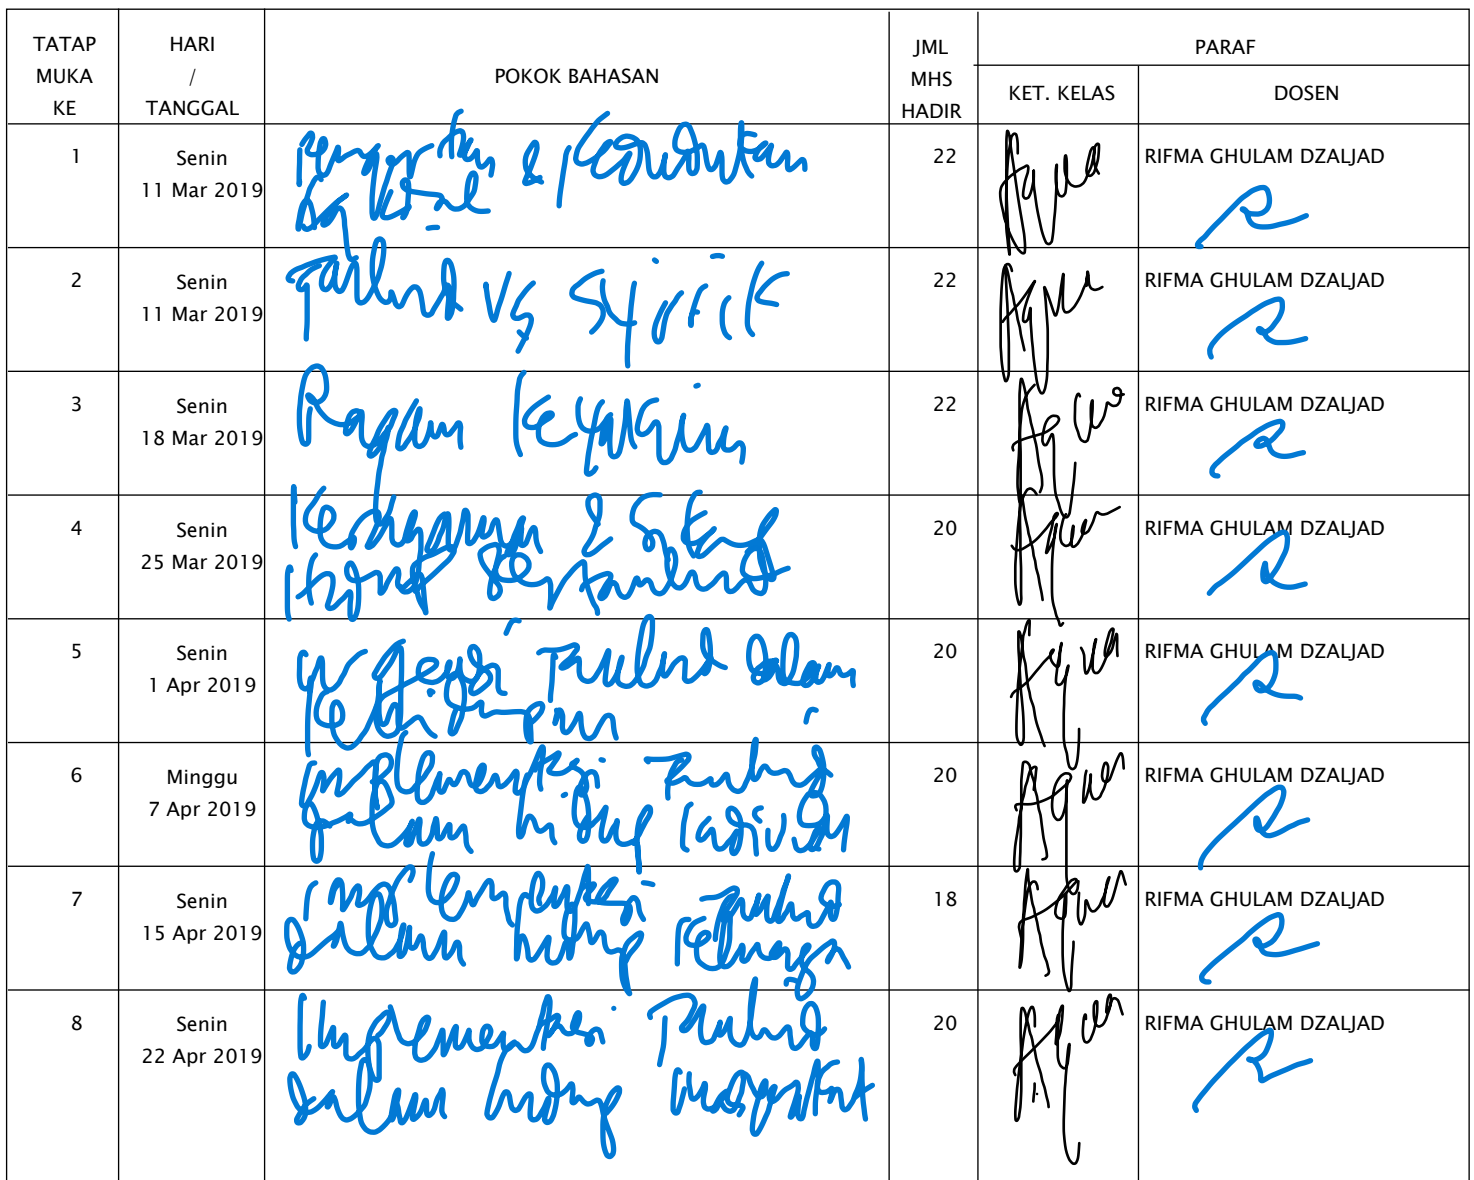 TATAP MUKA KE HARI / TANGGAL POKOK BAHASAN JML MHS HADIR PARAF
KET. KELAS DOSEN
1 Senin 11 Mar 2019 Pengertian & Kedudukan 22 RIFMA GHULAM DZALJAD
2 Senin 11 Mar 2019 Tauhid VS Syirik 22 RIFMA GHULAM DZALJAD
3 Senin 18 Mar 2019 Ragam Keyakinan 22 RIFMA GHULAM DZALJAD
4 Senin 25 Mar 2019 & Bertauhid 20 RIFMA GHULAM DZALJAD
5 Senin 1 Apr 2019 Tauhid dalam Kehidupan 20 RIFMA GHULAM DZALJAD
6 Minggu 7 Apr 2019 Implementasi Tauhid dalam hidup individu 20 RIFMA GHULAM DZALJAD
7 Senin 15 Apr 2019 Implementasi Tauhid dalam hidup Keluarga 18 RIFMA GHULAM DZALJAD
8 Senin 22 Apr 2019 Implementasi Tauhid dalam hidup masyarakat 20 RIFMA GHULAM DZALJAD